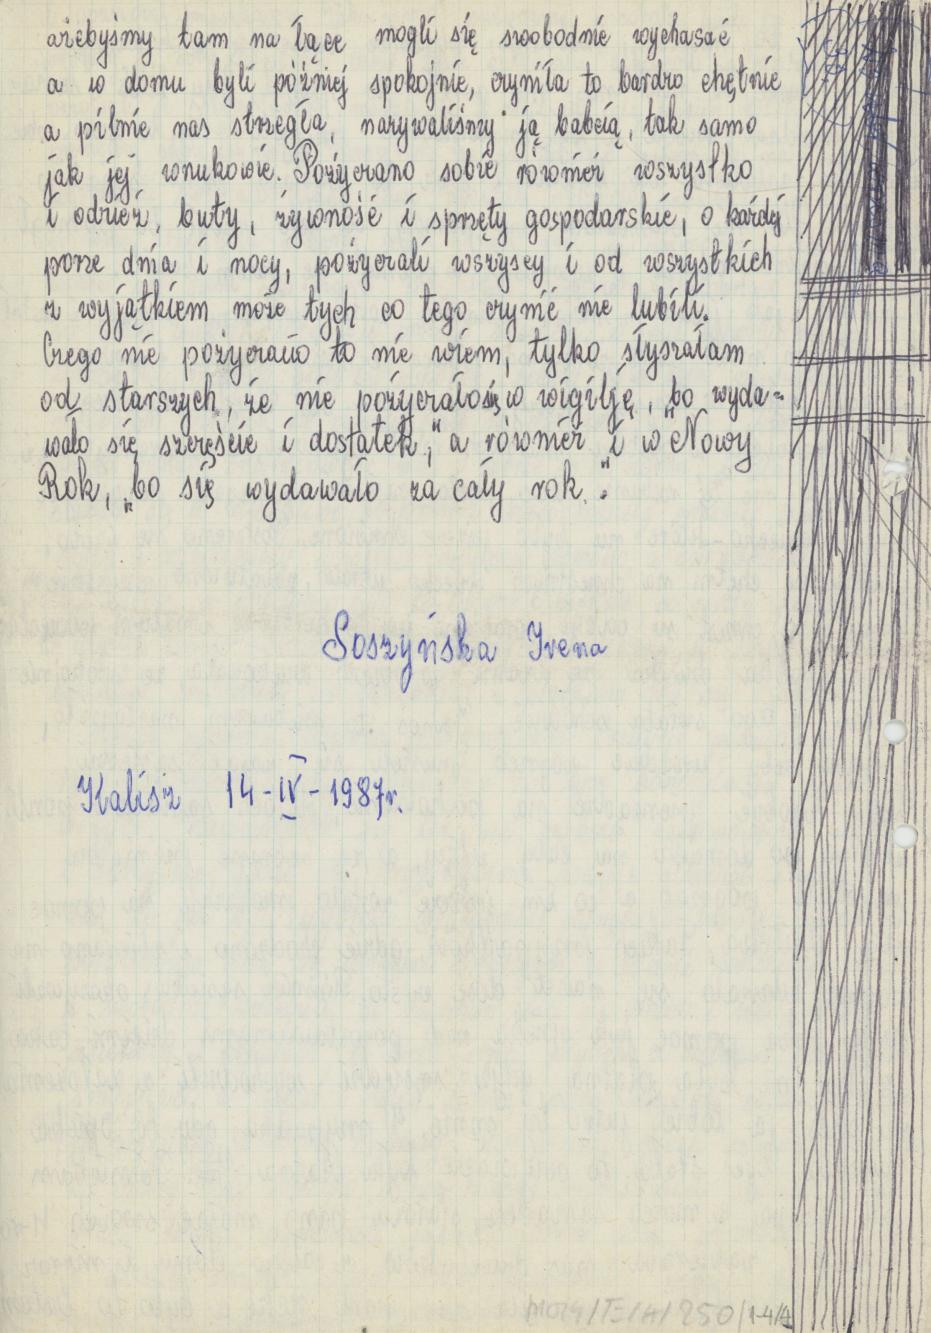 ażebyśmy tam na łące mogli się swobodnie wyhasać
a w domu byli później spokojnie, czyniła to bardzo chętnie
a pilnie nas strzegła, nazywaliśmy ją babcią, tak samo
jak jej wnukowie. Pożyczano sobie również wszystko
i odzież, buty, żywność i sprzęty gospodarskie, o każdej
porze dnia i nocy, pożyczali wszyscy i od wszystkich
z wyjątkiem może tych co tego czynić nie lubili.
Czego nie pożyczano to nie wiem, tylko słyszałam
od starszych, że nie pożyczało się w wigilję, „bo wyda-
wało się szczęście i dostatek," a również i w Nowy
Rok, „bo się wydawało za cały rok."
Soszyńska Irena
Kalisz 14-IV-1987r.